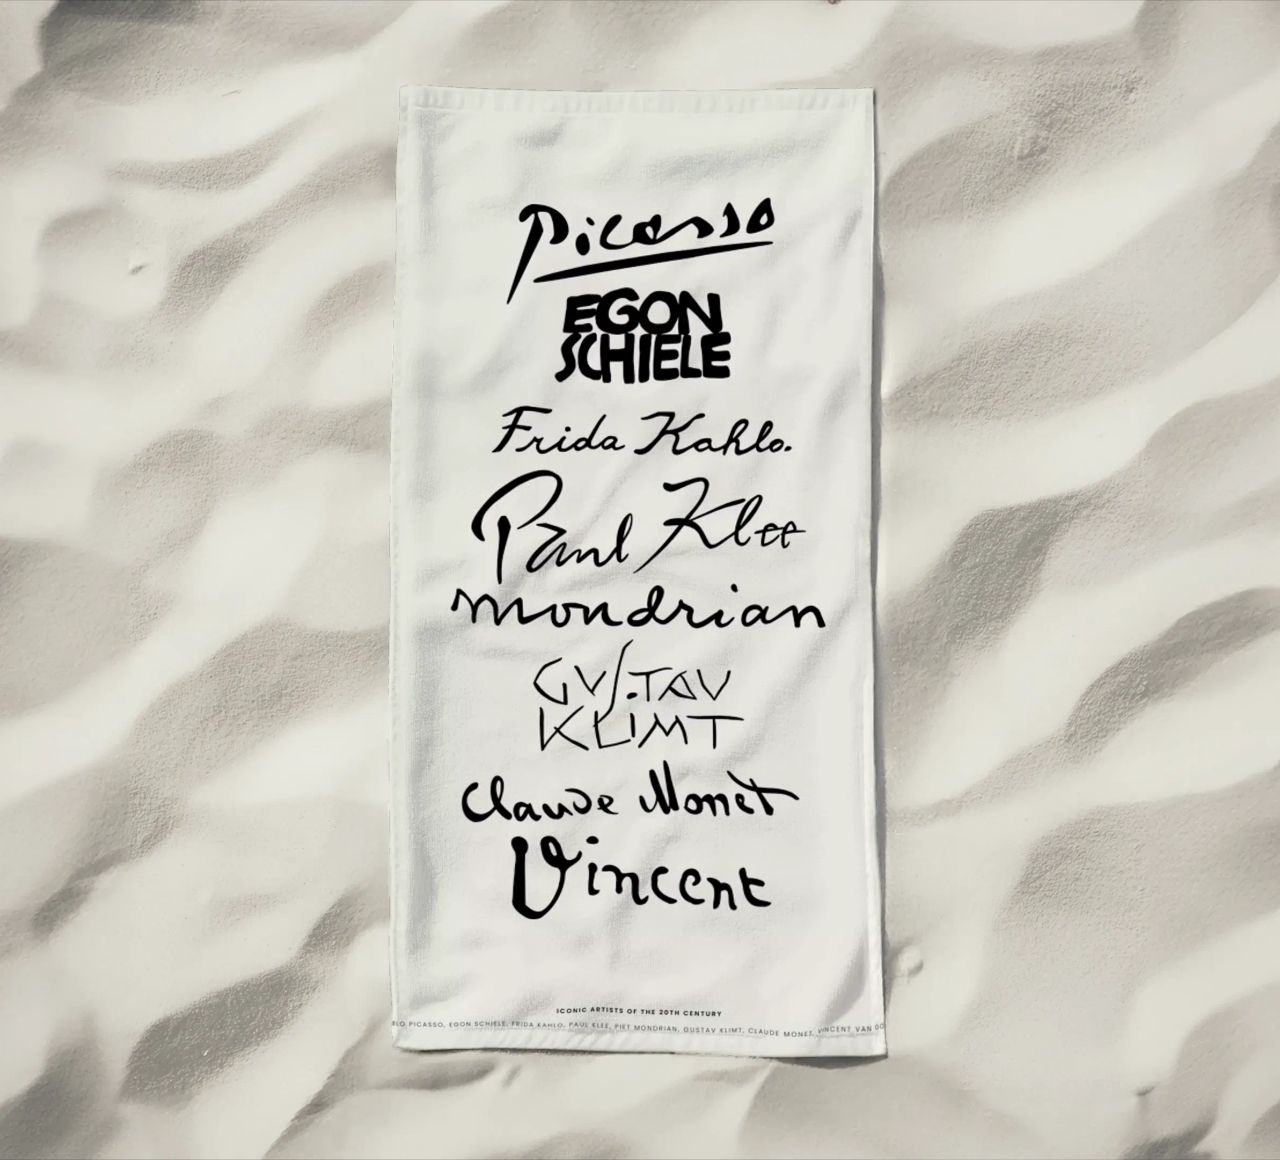 Picasso
EGON
SCHIELE
Frida Kahlo.
Paul Klee
mondrian
GUSTAV
KLIMT
Claude Monet
Vincent
ICONIC ARTISTS OF THE 20TH CENTURY
BLO PICASSO, EGON SCHIELE, FRIDA KAHLO, PAUL KLEE, PIET MONDRIAN, GUSTAV KLIMT, CLAUDE MONET, VINCENT VAN GO